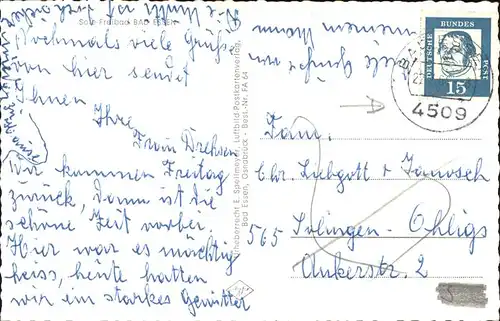 Sole-Freibad BAD ESSEN
Nochmals viele Grüße
von hier sendet
Ihnen
Ihre
Frau Drehsen
Wir kommen Freitag
zurück, dann ist die
schöne Zeit vorbei.
Hier war es mächtig
heiss, heute hatten
wir ein starkes Gewitter
viele Grüße von
meinem
Urheberrecht E. Spellmeyer, (Luftbild Postkartenverlag,
Bad Essen, Osnabrück - Best.-Nr. FA 64
DEUTSCHE
BUNDES
POST
15
4509
Fam.
Chr. Liebgott & Janosch
565 Solingen-Ohligs
Ankerstr. 2